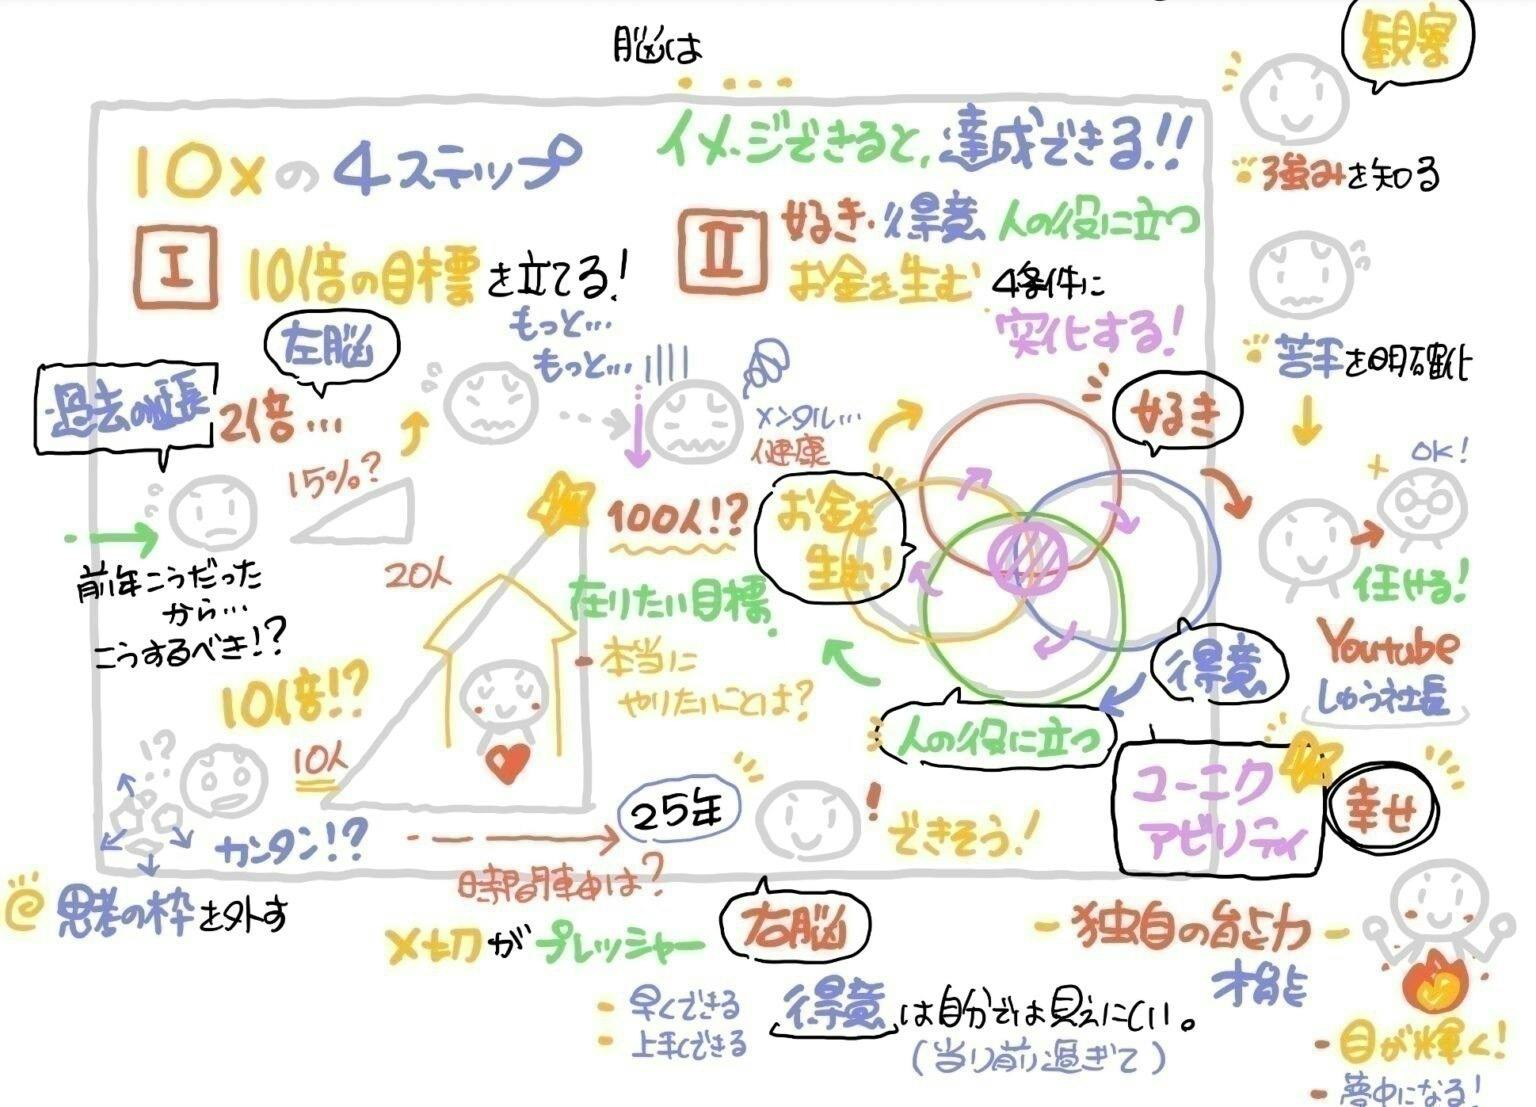 脳は
イメージできると、達成できる!!
10xの4ステップ
I
10倍の目標を立てる!
II
好き・得意 人の役に立つ
お金を生む 4条件に
突化する!
左脳
過去の延長
2倍…
15%?
もっと…
もっと…
メンタル…
健康
前年こうだった
から…
こうするべき!?
20人
100人!?
在りたい目標
- 本当に
やりたいことは?
10倍!?
10人
!?
カンタン!?
思考の枠を外す
時間軸は?
25年
〆切がプレッシャー
できそう!
右脳
好き
お金を
生む!
得意
人の役に立つ
ユニーク
アビリティ
幸せ
- 独自の能力 -
才能
- 早くできる
- 上手くできる
得意は自分では見えにくい。
(当り前過ぎて)
観察
強みを知る
苦手を明確化
OK!
任せる!
Youtube
しゅう社長
- 目が輝く!
- 夢中になる!